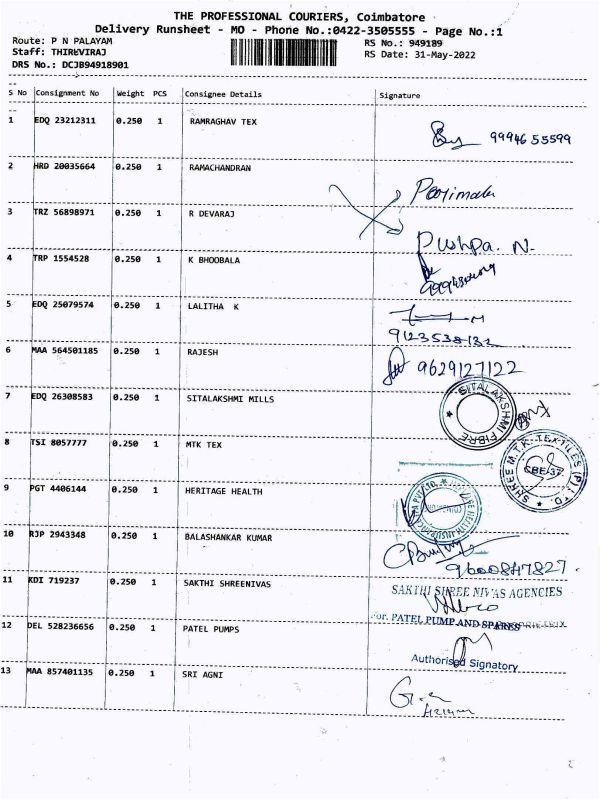 THE PROFESSIONAL COURIERS, Coimbatore
Delivery Runsheet - MO - Phone No.:0422-3505555 - Page No.:1
Route: P N PALAYAM
RS No.: 949189
Staff: THIRUVIRAJ
RS Date: 31-May-2022
DRS No.: DCJB94918901
S No Consignment No Weight PCS Consignee Details Signature
1 EDQ 23212311 0.250 1 RAMRAGHAV TEX 9994655599
2 HRD 20035664 0.250 1 RAMACHANDRAN
3 TRZ 56898971 0.250 1 R DEVARAJ Pushpa. N.
4 TRP 1554528 0.250 1 K BHOOBALA
5 EDQ 25079574 0.250 1 LALITHA K
6 MAA 564501185 0.250 1 RAJESH 9629127122
7 EDQ 26308583 0.250 1 SITALAKSHMI MILLS SITALAKSHMI FIBRE
8 TSI 8057777 0.250 1 MTK TEX SHREE M.T.K. TEXTILES (P) LTD. CBE-37
9 PGT 4406144 0.250 1 HERITAGE HEALTH
10 RJP 2943348 0.250 1 BALASHANKAR KUMAR 9600847827.
11 KDI 719237 0.250 1 SAKTHI SHREENIVAS SAKTHI SHREE NIVAS AGENCIES
12 DEL 528236656 0.250 1 PATEL PUMPS For. PATEL PUMP AND SPARES
Authorised Signatory
13 MAA 857401135 0.250 1 SRI AGNI